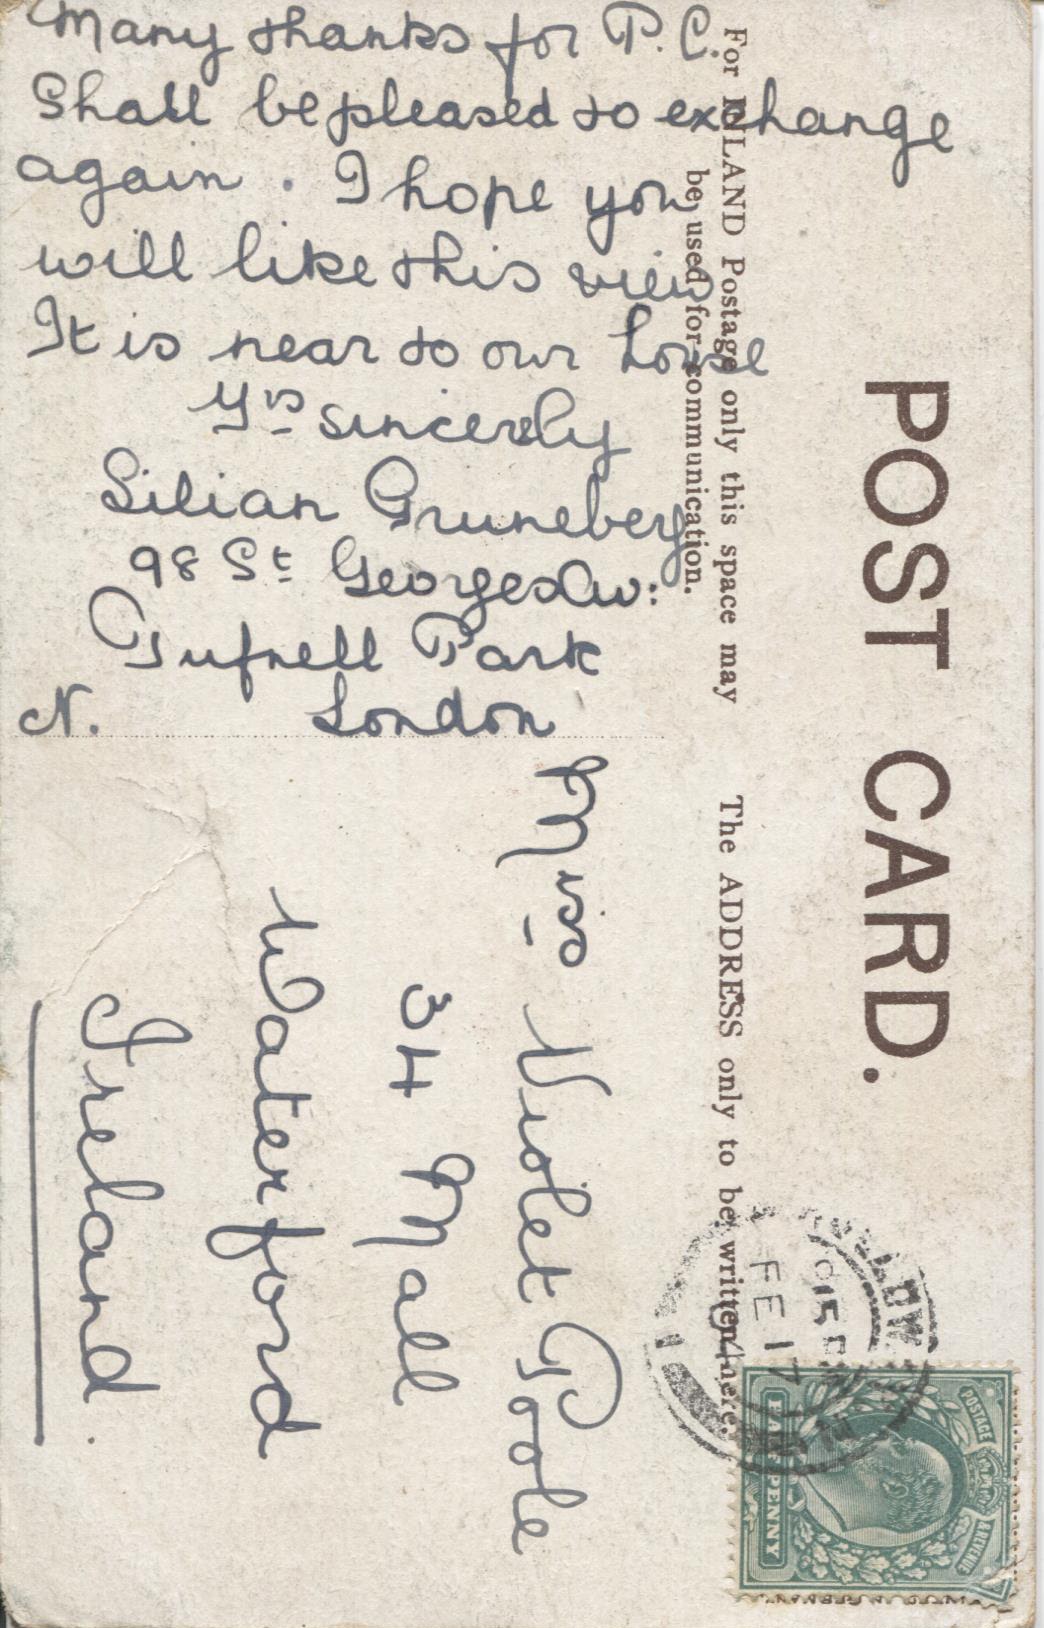 Many thanks for P.C.
Shall be pleased to exchange
again. I hope you
will like this view
It is near to our house
Yrs sincerely
Lilian Gruneberg
98 St Georges Av:
Tufnell Park
N. London
POST CARD.
For INLAND Postage only this space may
be used for communication.
The ADDRESS only to be written here.
Miss Violet Poole
34 Mall
Waterford
Ireland.
FE 17
POSTAGE & REVENUE
HALFPENNY